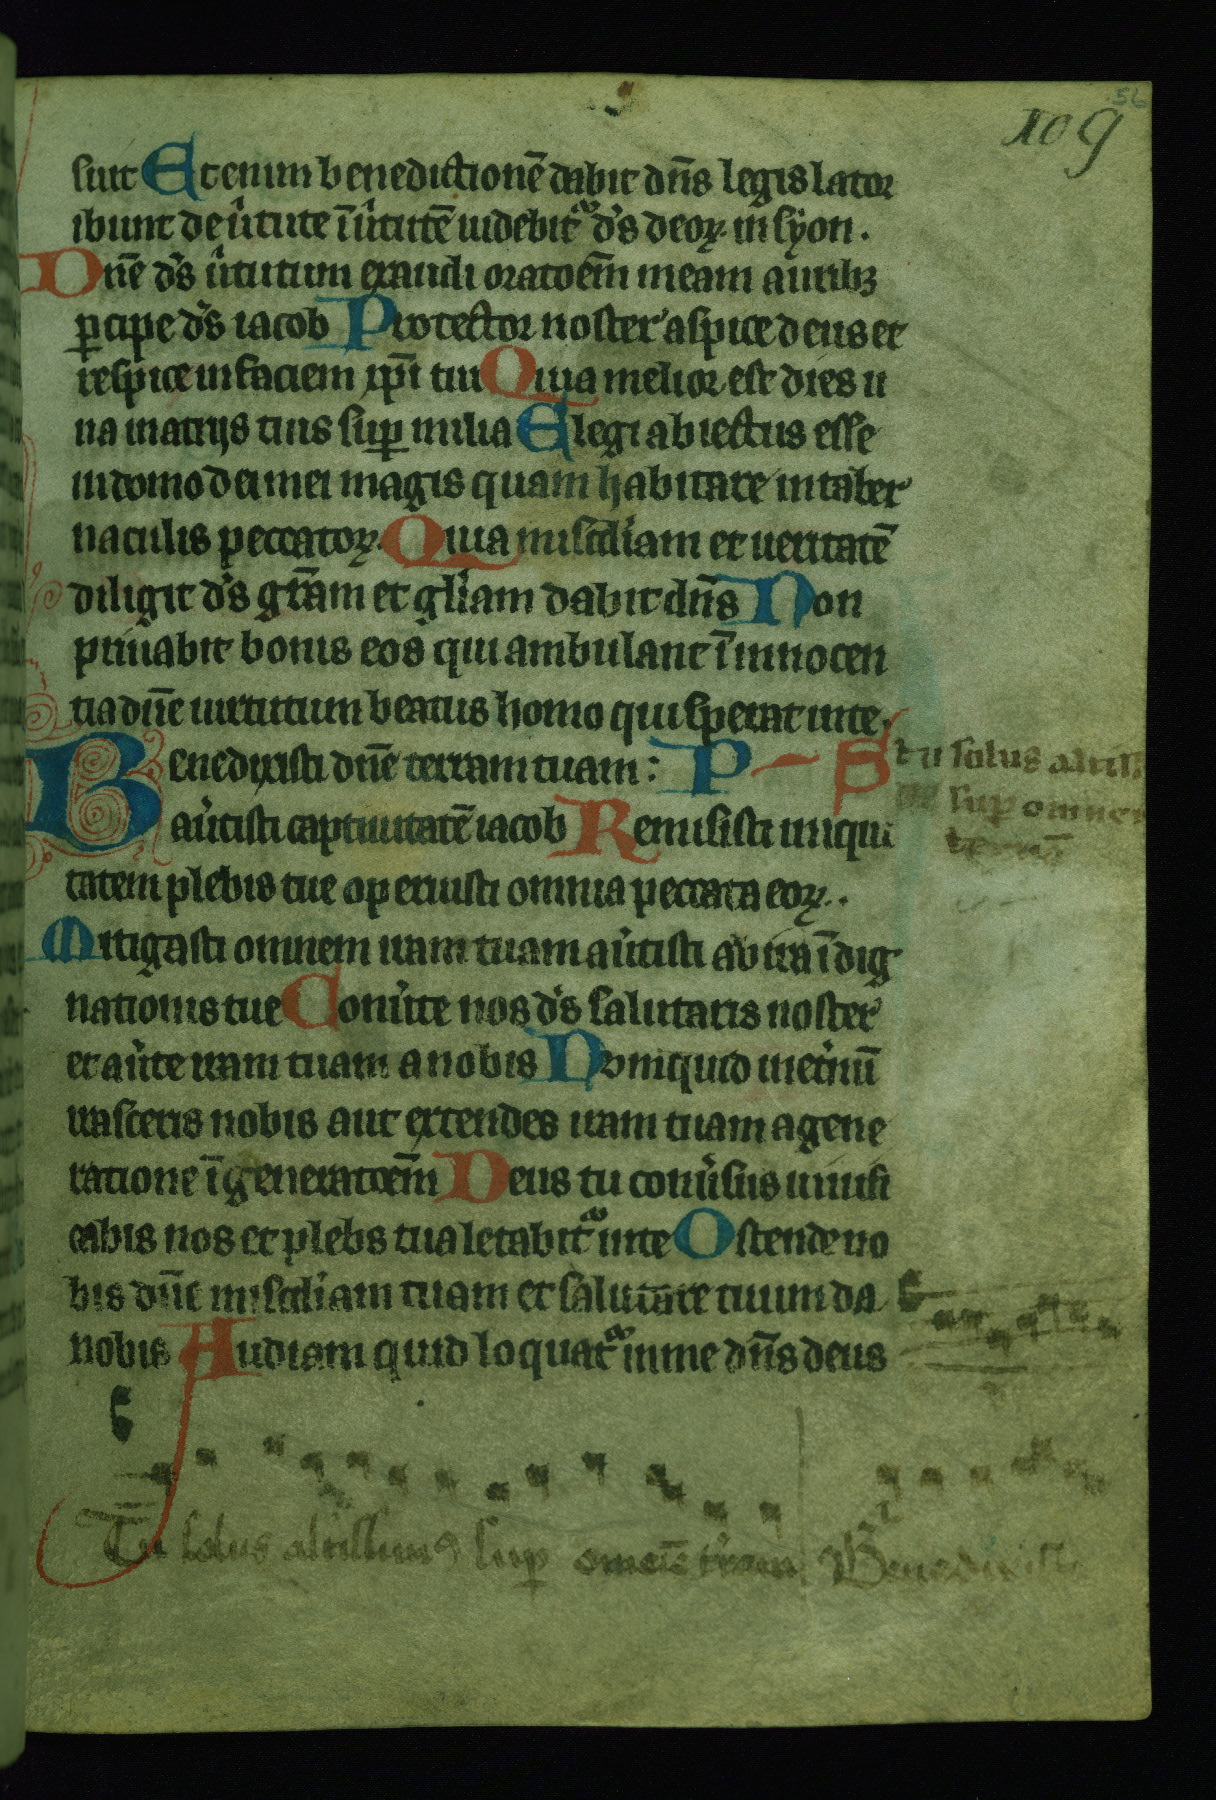 56
109
suit Etenim benedictionē dabit dn̄s legislator
ibunt de ûtute ī ûtutē uidebit᷑ d's deoꝝ in syon.
Dn̄e d's ûtutum exaudi oratoēm meam auribꝫ
ꝑcipe d's iacob Protector noster aspice deus et
respice in faciem xp̄i tui Quia melior est dies u
na in atrijs tuis suꝑ milia Elegi abiectus esse
in domo dei mei magis quam habitare in taber
naculis peccatoꝝ. Quia misc̄diam et ueritatē
diligit d's gr̄am et gl̄iam dabit dn̄s Non
priuabit bonis eos qui ambulant ī innocen
tia dn̄e uirtutum beatus homo qui sperat in te.
Benedixisti dn̄e terram tuam: P S tu solus altiss
suꝑ omnem
aûtisti captiuitatē iacob Remisisti iniqui
terrā
tatem plebis tue operuisti omnia peccata eoꝝ..
Mitigasti omnem iram tuam aûtisti ab ira īdig
nationis tue Conûte nos d's salutaris noster
et aûte iram tuam a nobis Nomquid inet'nū
irasceris nobis aut extendes iram tuam a gene
ratione ī generatoēm Deus tu conûsus uiuifi
cabis nos et plebs tua letabit᷑ in te Ostende no
bis dn̄e misc̄diam tuam et salutare tuum da
nobis Audiam quid loquat᷑ in me dn̄s deus
Tu solus altissimꝰ suꝑ omnē t'ram Benedixisti